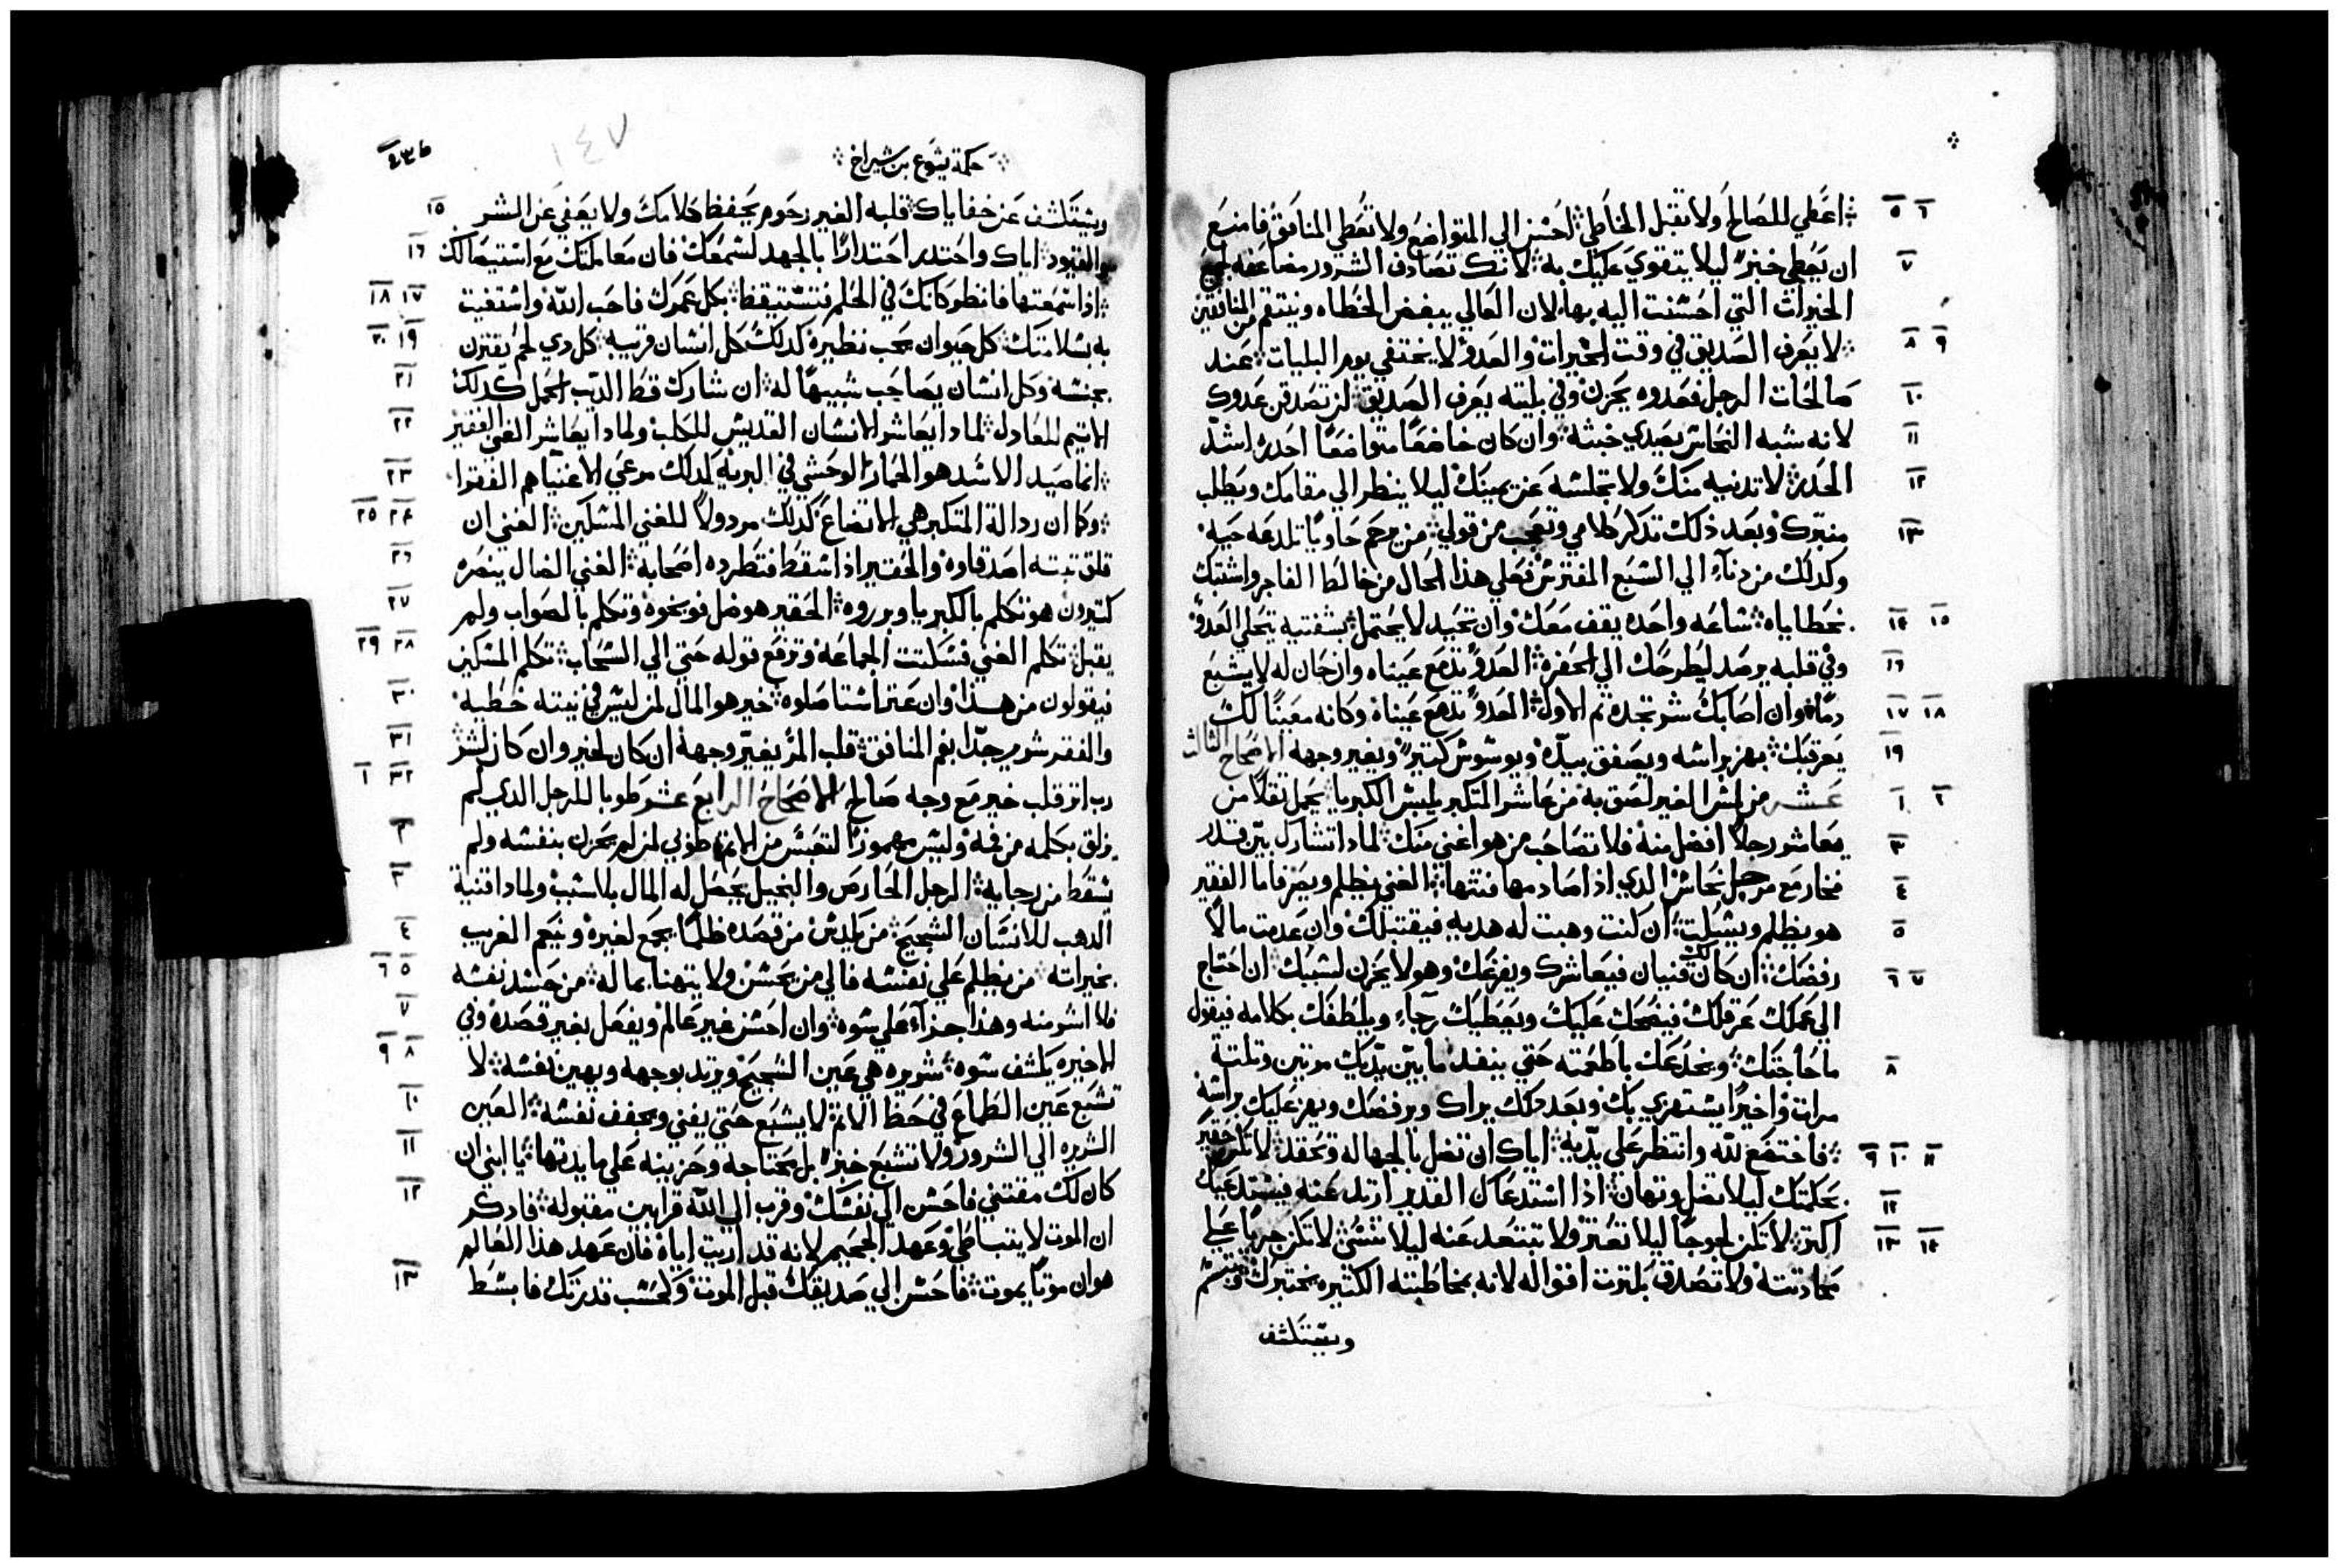 اعطي للصالح ولا تقبل الخاطي احسن الي المتواضع ولا تعطي المنافق فامنع ٥ ٦
ان يعطي خبزه ليلا يتقوي عليك به لانك تصادف الشرور مضاعفه لجميع ٧
الخيرات التي احسنت اليه بها لان العالي يبغض الخطاه وينتقم من المنافقين
لا يعرف الصديق في وقت الخيرات والعدو لا يختفي يوم البليات عند ٨ ٩
صالحات الرجل فعدوه يحزن وفي بليته يعرف الصديق لن تصدق عدوك ١٠
لانه شبه النحاس يصدي خبثه وان كان خاضعا متواضعا احدره اشد ١١
الحدر لا تدنيه منك ولا تجلسه عن يمينك ليلا ينظر الي مقامك ويطلب ١٢
منبرك وبعد ذلك تدكر كلامي وتعجب من قولي من يرحم حاويا تلدعه حيه ١٣
وكدلك من دناء الي السبع المفترس فعلي هذا الحال من خالط الفاجر واشتبك
بخطاياه ساعه واحده يقف معك وان تحيد لا يحتمل بشفتيه يتحلي العدو ١٤ ١٥
وفي قلبه يرصد ليطرحك الي الحفره العدو تدمع عيناه وان حان له لا يشبع ١٦
دما وان اصابك شر تجده ثم الاول العدو تدمع عيناه وكانه معينا لك ١٧ ١٨
يعرقبك يهز براسه ويصفق بيده ويوسوس كتير ويغير وجهه الاصحاح الثالث ١٩
عشر من لمس القير لصق به من عاشر المتكبر يلبس الكبريا يحمل ثقلا من ١ ٢
يعاشر رجلا افضل منه فلا تصاحب من هو اغني منك لمادا تشارك بين قدر ٣
فخار مع مرجل نحاس الدي اذا صادمها فتتها الغني يظلم ويصرف اما الفقير ٤
هو يظلم ويسكت ان كنت وهبت له هديه فيقتبلك وان عدمت مالا ٥
رفضك ان كان لك قنيان فيعاشرك ويفرغك وهو لا يحزن لسببك ان احتاج ٦ ٧
الي عملك عرقلك فيضحك عليك ويعطيك رجاء ويلطفك بكلامه فيقول
ما حاجتك ويخدعك باطعمته حتي ينفد ما بين يديك مرتين وتلتة ٨
مرات واخيرا يستهزي بك وبعد دلك يراك ويرفضك ويهز عليك براسه
فاختضع لله وانتظر علي يديه اياك ان تضل بالجهاله وتحقد لا تكن حقير ٩ ١٠ ١١
بحكمتك ليلا تضل وتهان اذا استدعاك القدير ارتد عنه فيستدعيك ١٢
اكتر لا تكن لجوجا ليلا تعتر ولا تبتعد عنه ليلا تنسي لا تكن جريا علي ١٣ ١٤
محادتته ولا تصدق بكترت اقواله لانه بمخاطبته الكتيره يختبرك ويتبسم
ويستكشف
حكمة يشوع بن شيراخ
١٤٧
ويستكشف عن خفاياك قلبه الغير رحوم يحفظ كلامك ولا يعفي عن الشر ١٥
والقيود اياك واحتدر احتدارا بالجهد لسمعك فان معاملتك مع استيصالك ١٦
اذا سمعتها فانظر كانك في الحلم فتستيقظ بكل عمرك فاحب الله واستغيت ١٧ ١٨
به بسلامتك كل حيوان يحب نظيره كدلك كل انسان قريبه كل دي لحم يقترن ١٩ ٢٠
بجنسه وكل انسان يصاحب شبيها له ان شارك قط الديب الحمل كدلك ٢١
الاتيم للعادل لمادا يعاشر الانسان القديس للكلب ولمادا يعاشر الغني الفقير ٢٢
انما صيد الاسد هو الحمار الوحشي في البريه كدلك مرعي الاغنيا هم الفقرا ٢٣
وكما ان ردالة المتكبر هي الاتضاع كدلك مردولا للغني المسكين الغني ان ٢٤ ٢٥
قلق تبته اصدقاوه والحقير اذا سقط فتطرده اصحابه الغني الضال ينصره ٢٦
كتيرون هو تكلم بالكبريا وبرروه الحقير هو ضل فوبخوه وتكلم بالصواب ولم ٢٧
يقبل تكلم الغني فسكتت الجماعه وترفع قوله حتي الي السحاب تكلم المسكين ٢٨ ٢٩
فيقولون من هذا وان عتر استاصلوه خير هو المال لمن ليس في نيته خطيه ٣٠
والفقر شرير جدا بفم المنافق قلب المر يغير وجهه ان كان لخير وان كان لشر ٣١
قلب خير مع وجه صالح الاصحاح الرابع عشر طوبا للرجل الدي لم ٣٢ ١
يزلق بكلمه من فمه وليس مهموزا لتعبس من الاتم طوبي لمن لم يحزن بنفسه ولم ٢
يسقط من رجايه الرجل الحارص والبخيل يحصل له المال بلا سبب ولمادا قنية ٣
الدهب للانسان الشحيح من يكدس من قصده ظلما يجمع لغيره ويتنعم الغريب ٤
بخيراته من يظلم علي نفسه فالي من يحسن ولا يتهنا بماله من حسد نفسه ٥ ٦
فلا اشر منه وهذا جزاء علي سوه وان احسن غير عالم ويفعل بغير قصده وفي ٧
الاخيره يكشف سوه شريره هي عين الشحيح ويرتد بوجهه ويهين نفسه لا ٨ ٩
تشبع عين الطماع في حظ الاتم لا يشبع حتي يفني ويجفف نفسه العين ١٠
الشريره الي الشرور ولا تشبع خبزه بل محتاجه وحزينه علي مايدتها يا ابني ان ١١
كان لك مقتني فاحسن الي نفسك وقرب الي الله قرابين مقبوله فادكر ١٢
ان الموت لا يتباطي وعهد الجحيم لانه قد اريت اياه فان عهد هذا العالم
هو ان موتا يموت فاحسن الي صديقك قبل الموت وكحسب قدرتك فابسط ١٣